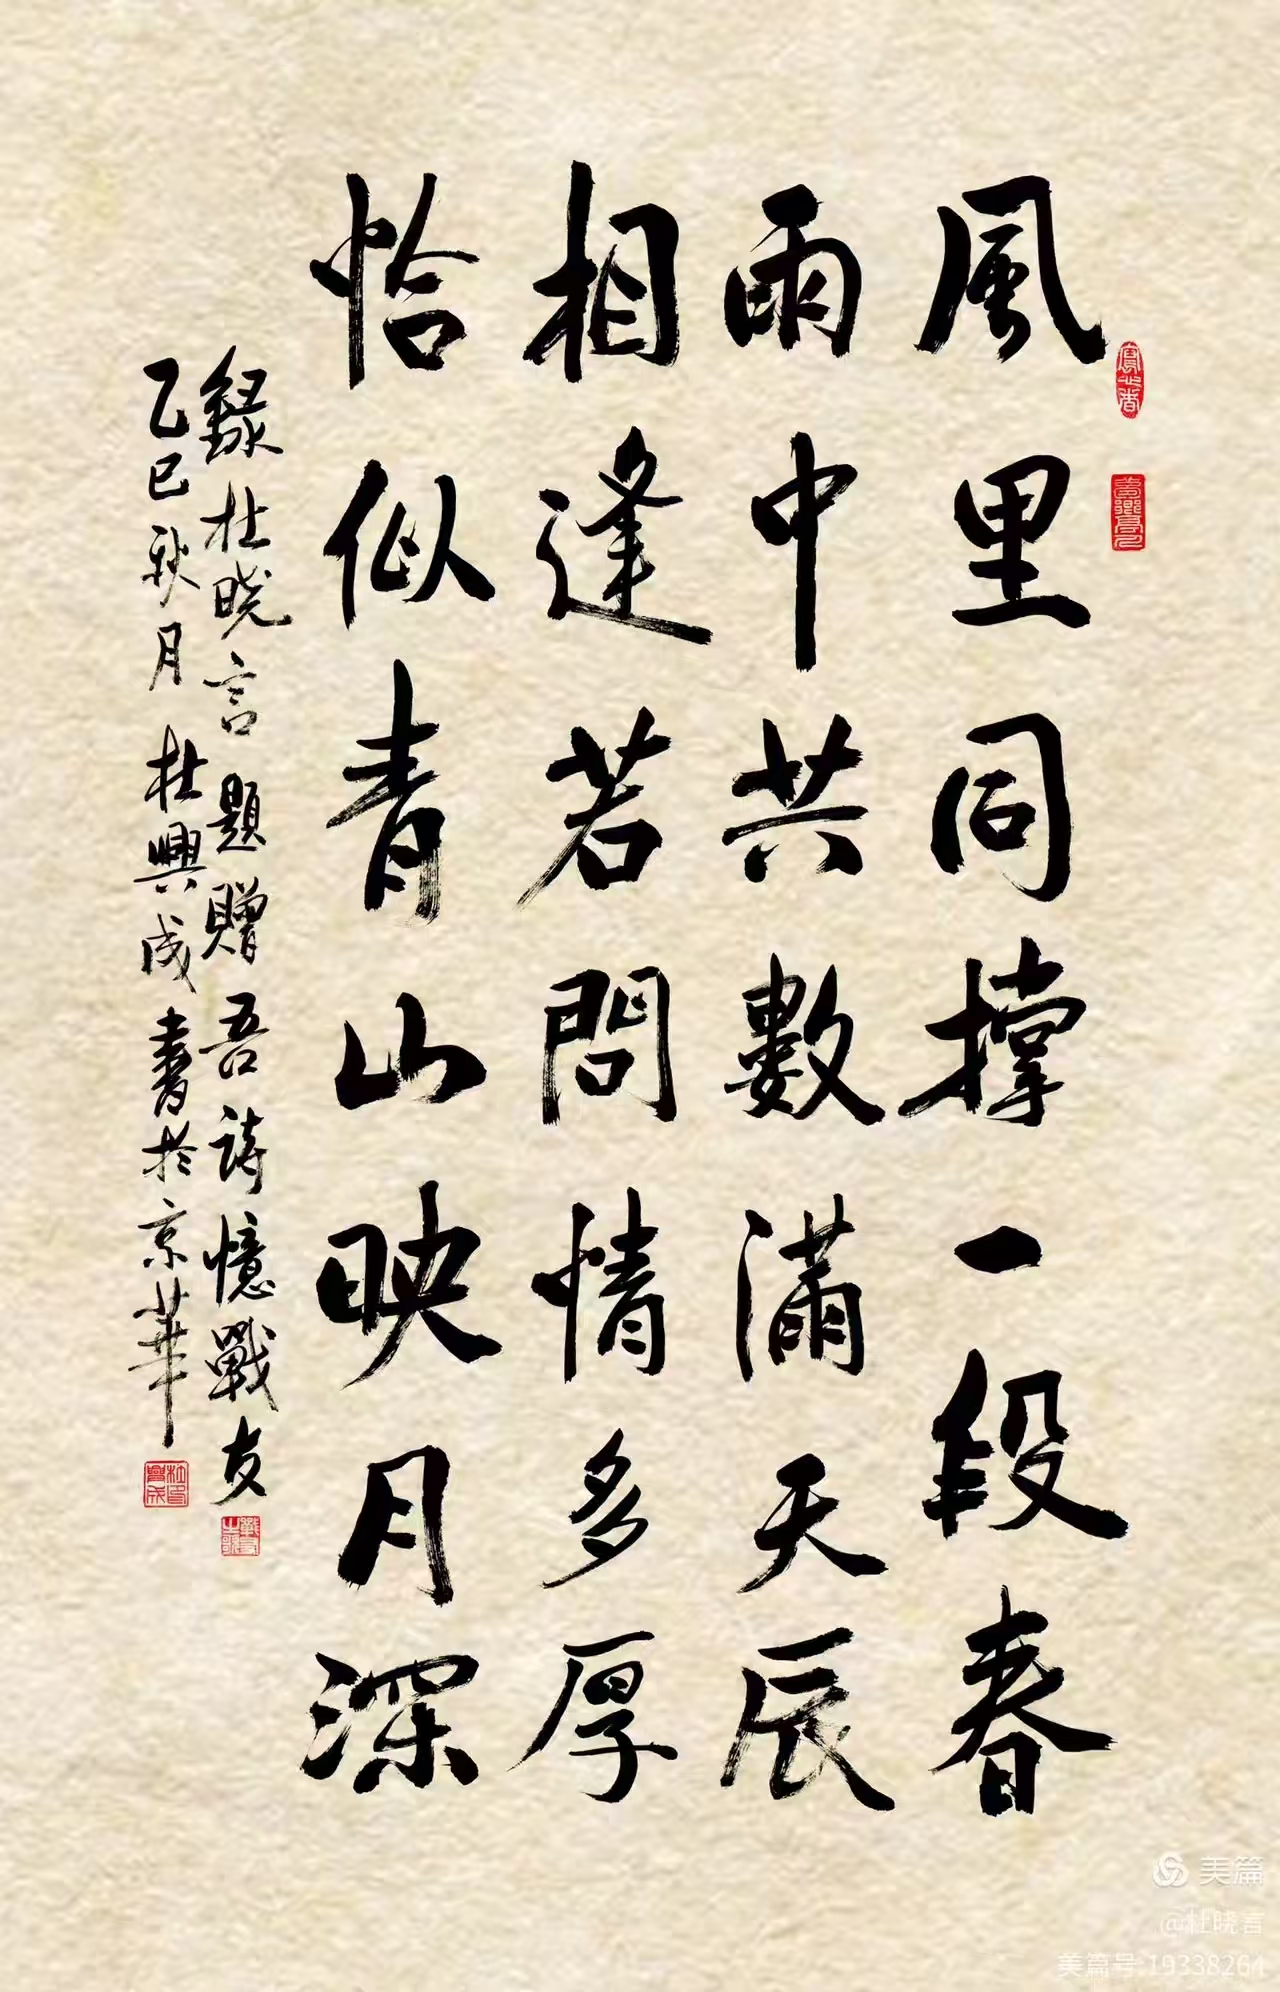 風里同撑一段春
雨中共數滿天辰
相逢若問情多厚
恰似青山映月深
録杜晓言題贈吾詩憶戰友
乙巳秋月杜興成書於京華
美篇
@杜晓言
美篇号:19338264